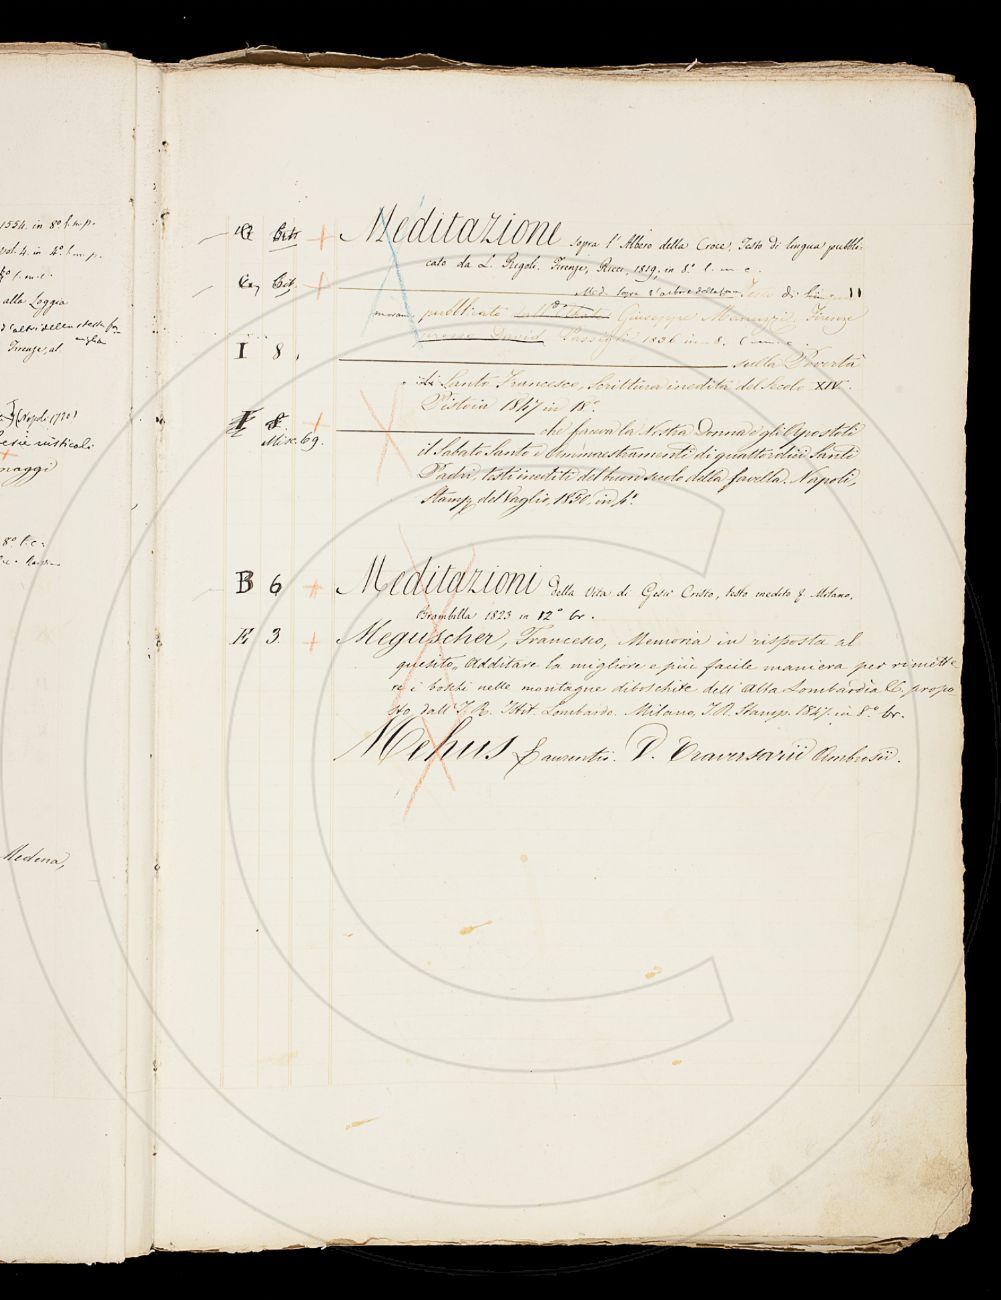 1554. in 8.° l. m. p.
vol. 4. in 4.° l. m. p.
alla Loggia
Firenze, al
(Napoli 1720)
rusticali
maggi
8.° l. c.
Modena,
Meditazione sopra l'Albero della Croce, Testo di lingua pubbli-
cato da L. Rigoli. Firenze, Ricci, 1819, in 8.° l. m. c.
Cit. Med. sopra l'arbore della Testo di lingua
pubblicato Giuseppe Manuzzi. Firenze
David Passigli 1836 in 8. l. m. c.
I 8. sulla Povertà
di Santo Francesco, Scrittura inedita del Secolo XIV.
Pistoia 1847 in 18.°
I 8. che faceva la Nostra Donna e gli Apostoli
Misc. 69. il Sabato Santo e Ammaestramenti di quattordici Santi
Padri, testi inediti del buon secolo della favella. Napoli,
Stamp. del Vaglio, 1850, in 4.°
B 6 Meditazioni della Vita di Gesù Cristo, testo inedito & Milano,
Brambilla 1823 in 12.° br.
E 3 Meguscher, Francesco, Memoria in risposta al
quesito, "Additare la migliore e più facile maniera per rimette-
re i boschi nelle montagne diboschite dell'Alta Lombardia &. propo-
sto dall'I. R. Istit. Lombardo. Milano, I. R. Stamp. 1847. in 8.° br.
Mehus Laurentii. V. Traversarii Ambrosii.